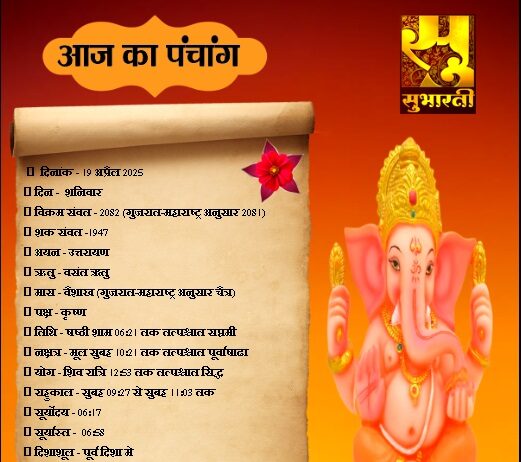 आज का पंचांग
सुभारती
दिनांक - 19 अप्रैल 2025
दिन - शनिवार
विक्रम संवत - 2082 (गुजरात-महाराष्ट्र अनुसार 2081)
शक संवत -1947
अयन - उत्तरायण
ऋतु - वसंत ऋतु
मास - वैशाख (गुजरात-महाराष्ट्र अनुसार चैत्र)
पक्ष - कृष्ण
तिथि - षष्ठी शाम 06:21 तक तत्पश्चात सप्तमी
नक्षत्र - मूल सुबह 10:21 तक तत्पश्चात पूर्वाषाढा
योग - शिव रात्रि 12:53 तक तत्पश्चात सिद्ध
राहुकाल - सुबह 09:27 से सुबह 11:03 तक
सूर्योदय - 06:17
सूर्यास्त - 06:58
दिशाशूल - पूर्व दिशा मे